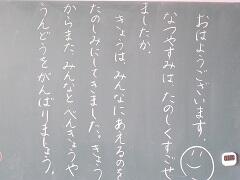 おはようございます。
なつやすみは、たのしくすごせ
ましたか。
きょうは、みんなにあえるのを
たのしみにしてきました。きょう
からまた、みんなとべんきょうや
うんどうをがんばりましょう。